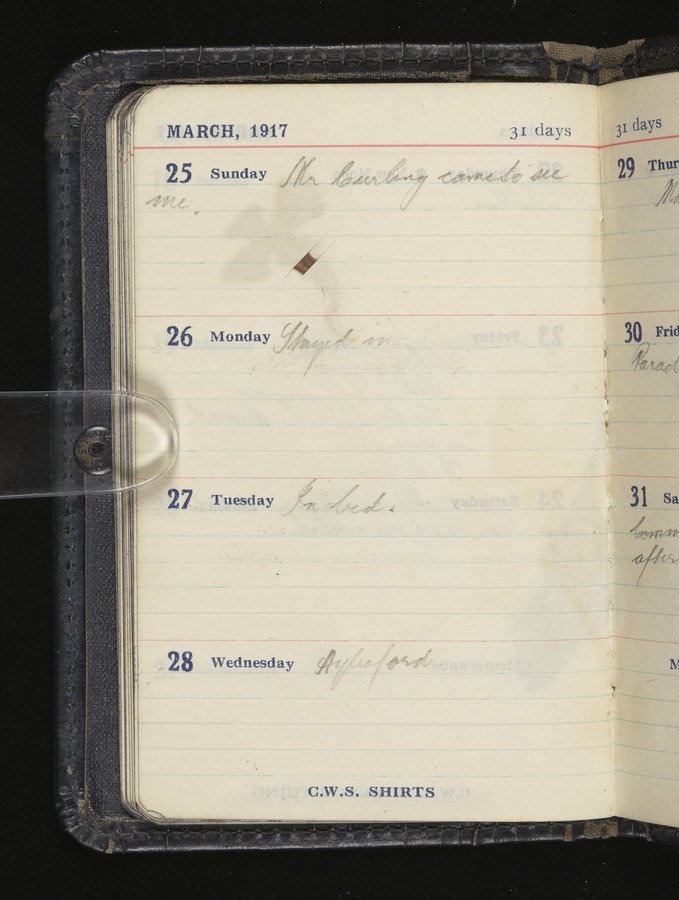 MARCH, 1917 31 days
25 Sunday Mr Curling came to see
me.
26 Monday Stayed in
27 Tuesday In bed.
28 Wednesday Aylesford
C.W.S. SHIRTS
31 days
29 Thur
30 Frid
Parad
31 Sa
Comm
after
M